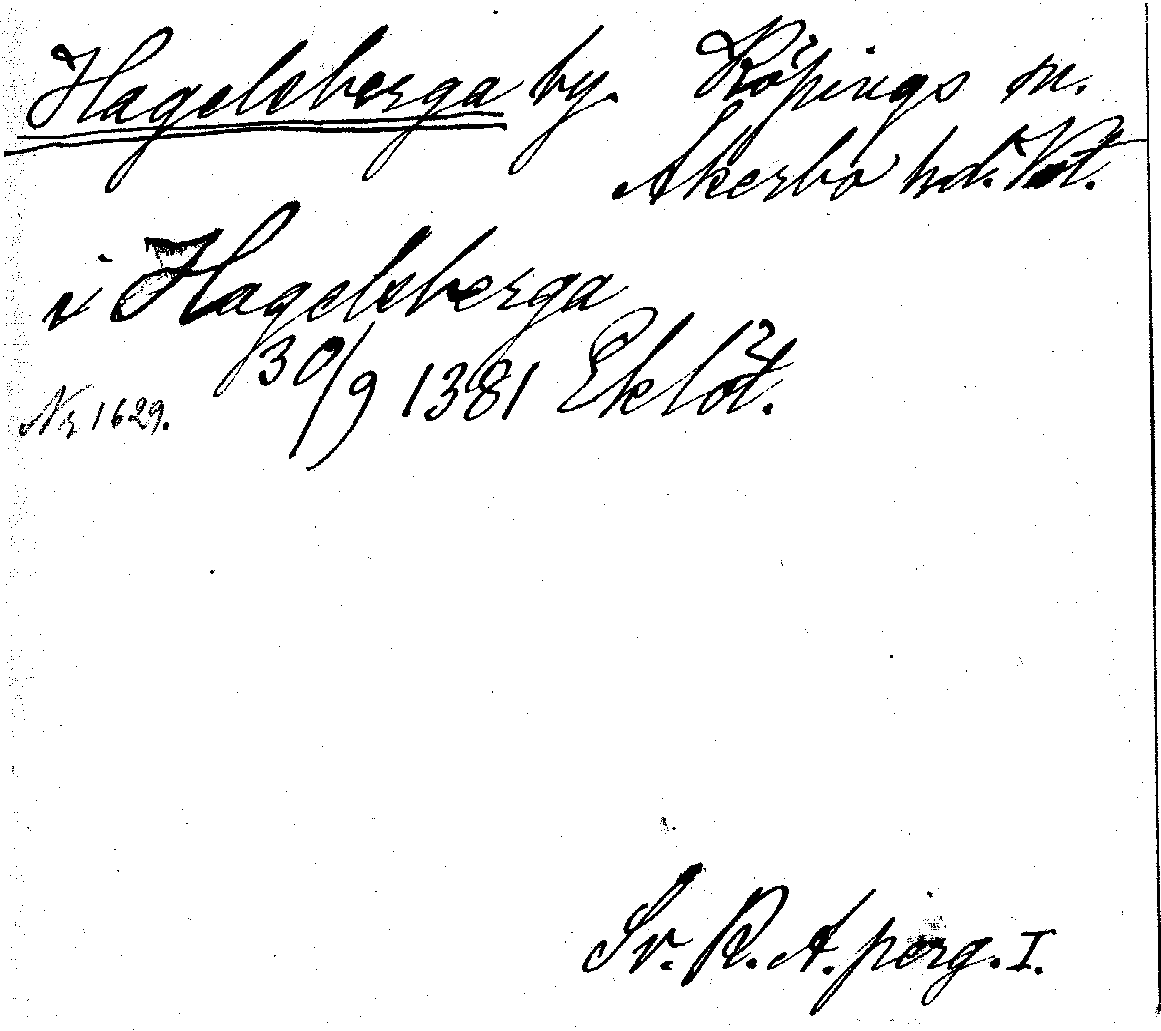 Hagelsberga by. Köpings sn.
Åkerbo hd. Vstl.
i Hagelsberga
30/9 1381 Eklöt.
Nr 1629.
Sv. R. A. perg. I.